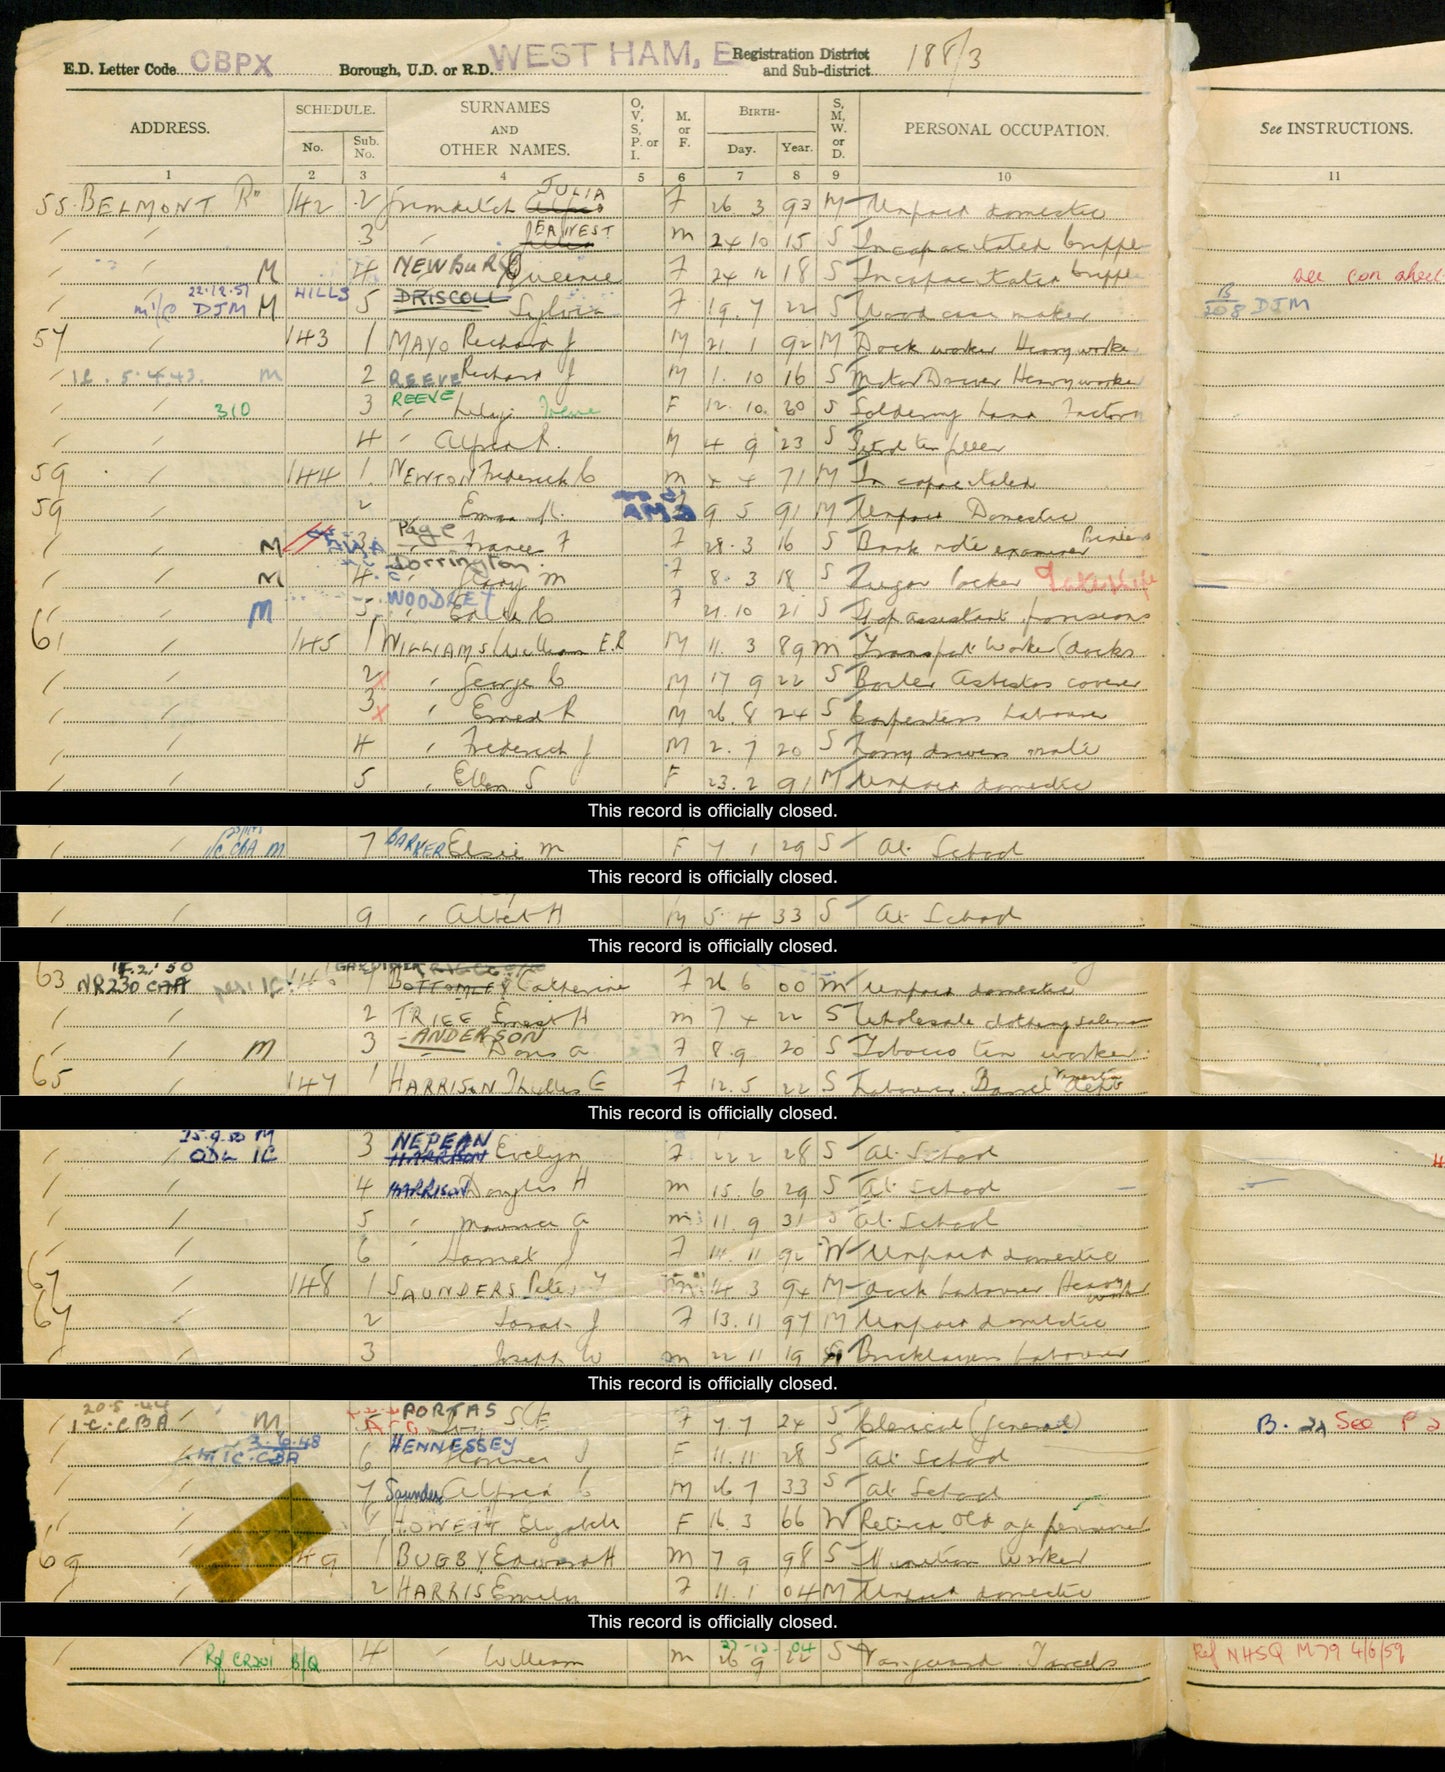 E.D. Letter Code CBPX Borough, U.D. or R.D. WEST HAM, E Registration District and Sub-district 188/3
ADDRESS. SCHEDULE. No. Sub. No. SURNAMES AND OTHER NAMES. O, V, S, P. or I. M. or F. BIRTH- Day. Year. S, M, W. or D. PERSONAL OCCUPATION. See INSTRUCTIONS.
1 2 3 4 5 6 7 8 9 10 11
55 BELMONT Rd 142 2 JULIA F 26 3 93 M Unpaid domestic
3 " ERNEST M 24 10 15 S Incapacitated Cripple
M 4 NEWBURY Queenie F 24 12 18 S Incapacitated Cripple see con sheet
22.12.51 DJM M HILLS 5 DRISCOLL Sylvia F 19. 7 22 S Wood case maker B 208 DJM
57 143 1 MAYO Richard J M 21 1 92 M Dock worker Heavy worker
5.4.43. M 2 REEVE Richard J M 1. 10 16 S Motor Driver Heavy worker
310 3 REEVE " Irene F 12. 10. 20 S Soldering hand Factory
4 " Alfred R. M 4 9 23 S Petrol tin filler
59 144 1. NEWTON Frederick C M 4 71 M Incapacitated
59 2 Emma R. 9 5 91 M Unpaid Domestic
M 3 Page " Frances F F 28. 3 16 S Bank note examiner Printers
M 4 Torrington F 8. 3 18 S Sugar Packer
M 5 WOODLEY Edith C F 21. 10 21 S Shop assistant provisions
61 145 1 WILLIAMS William E.R M 11. 3 89 M Transport Worker (docks
2 " George C M 17 9 22 S Boiler Asbestos coverer
3 " Ernest R M 26. 8 24 S Carpenters Labourer
4 " Frederick J M 2. 7 20 S Lorry drivers mate
5 " Ellen S F 23. 2 91 M Unpaid domestic
This record is officially closed.
CBA M 7 BARKER Elsie M F 7 1 29 S At School
This record is officially closed.
9 " Albert H M 5. 4 33 S At School
This record is officially closed.
63 NR230 CAA 1 GARDINER BOTTOMLEY Catherine F 26 6 00 M Unpaid domestic
2 TRICE Ernest H M 7 22 S Wholesale clothing salesman
M 3 ANDERSON Doris A F 8. 9. 20 S Tobacco tin worker
65 147 1 HARRISON Phyllis E F 12. 5 22 S Labourer. Barrel dept
This record is officially closed.
15.9.50 M ODL IC 3 NEPEAN HARRISON Evelyn F 22 2 28 S At School
4 HARRISON Douglas H M 15. 6 29 S At School
5 " Maurice A M 11. 9 31 S At School
6 " Harriet J F 14. 11 92 W Unpaid domestic
67 148 1 SAUNDERS Peter M 14. 3 94 M Dock Labourer Heavy work
67 2 Sarah J F 13. 11 97 M Unpaid domestic
3 Joseph W M 22 11 19 Bricklayers Labourer
This record is officially closed.
20.5.44 I.C. CBA M 5 PORTAS F 7 7 24 S Clerical (General) B. 21 See P 2
3.6.48 M IC. CBA 6 HENNESSEY Florence J F 11. 11 28 S At School
7 Saunders Alfred C M 26 7 33 S At School
HOWETT Elizabeth F 16. 3 66 W Retired Old age pensioner
69 49 1 BUGBY Edward H M 7 9 98 S Munition Worker
2 HARRIS Emily F 11. 1 04 M Unpaid domestic
This record is officially closed.
Ref CR201 B/Q 4 " William M 26 9 22 27-12-04 S Vanguard Parcels Ref NHSQ M79 4/6/59